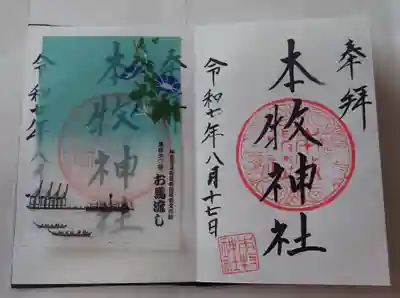 奉拝
本牧神社
令和七年八月十七日
本牧神社
お馬流し
本牧神社
令和七年八